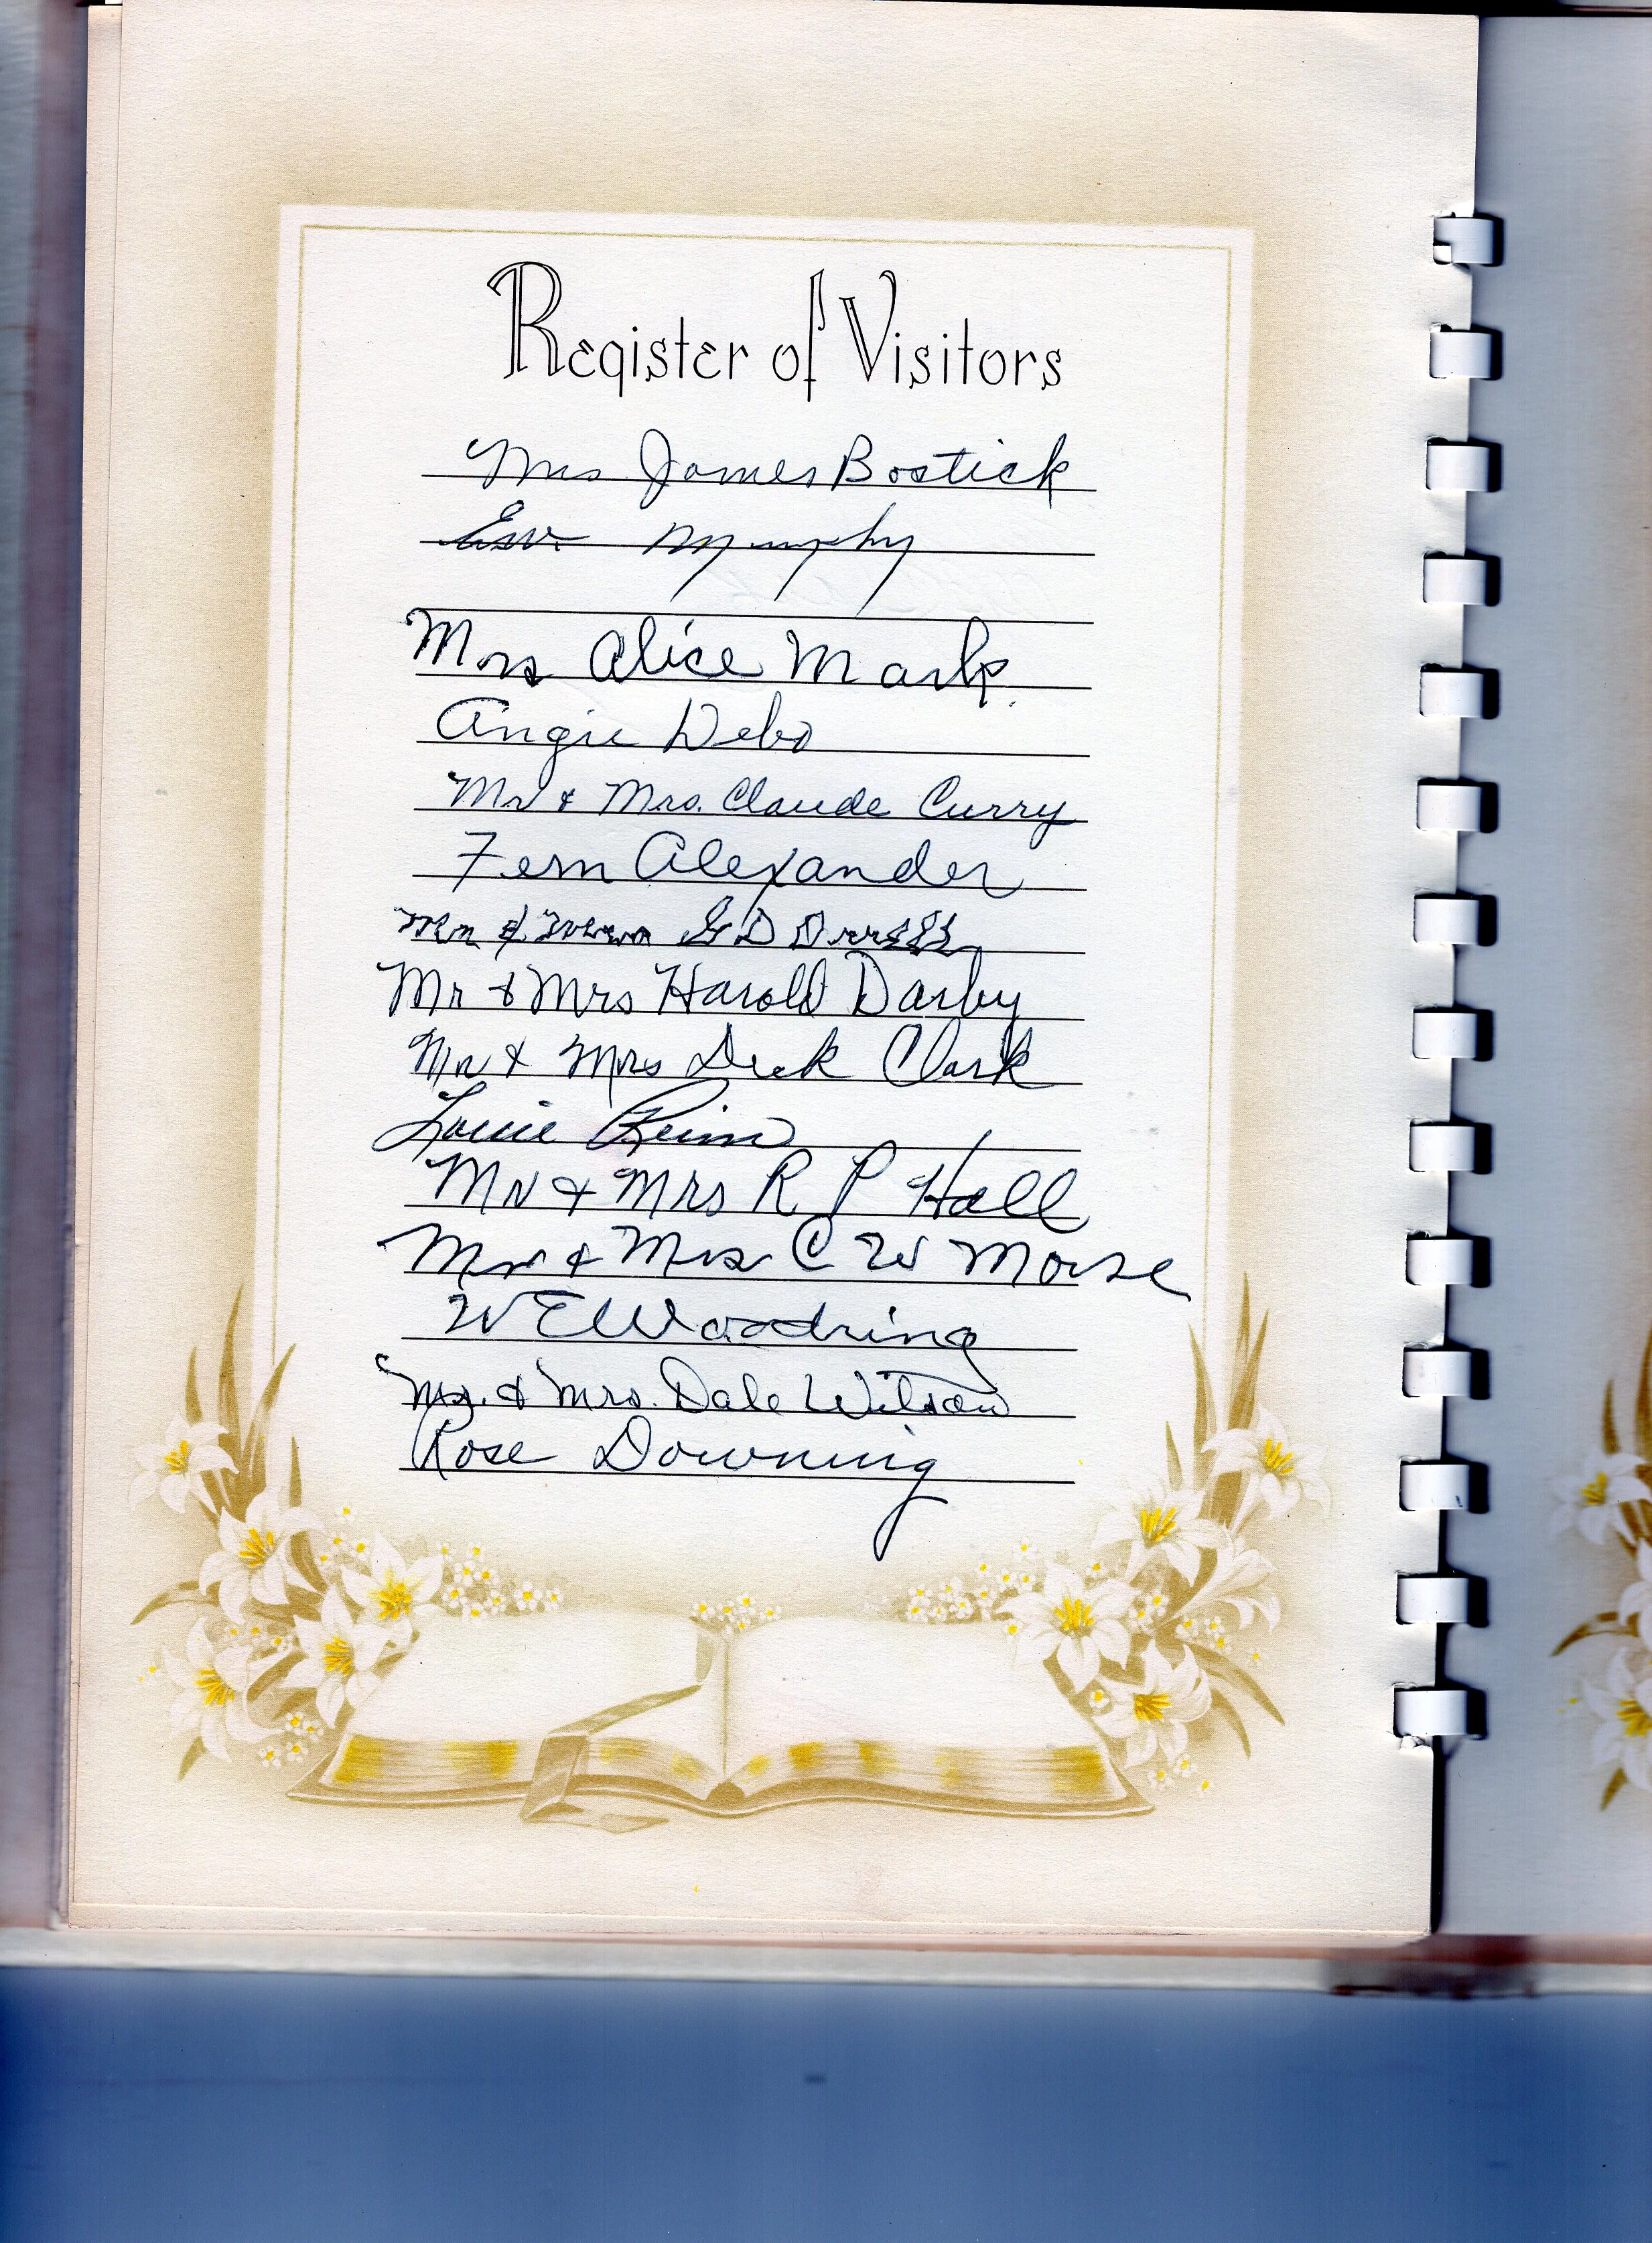 Register of Visitors
Mrs James Bostick
Murphy
Mrs Alice Mark
Angie Debo
Mr & Mrs. Claude Curry
Fern Alexander
Mr & Mrs G D
Mr & Mrs Harold Darby
Mr & Mrs Dick Clark
Louie Reim
Mr & Mrs R P Hall
Mr & Mrs C W Morse
W E Woodring
Mr. & Mrs. Dale Wilson
Rose Downing